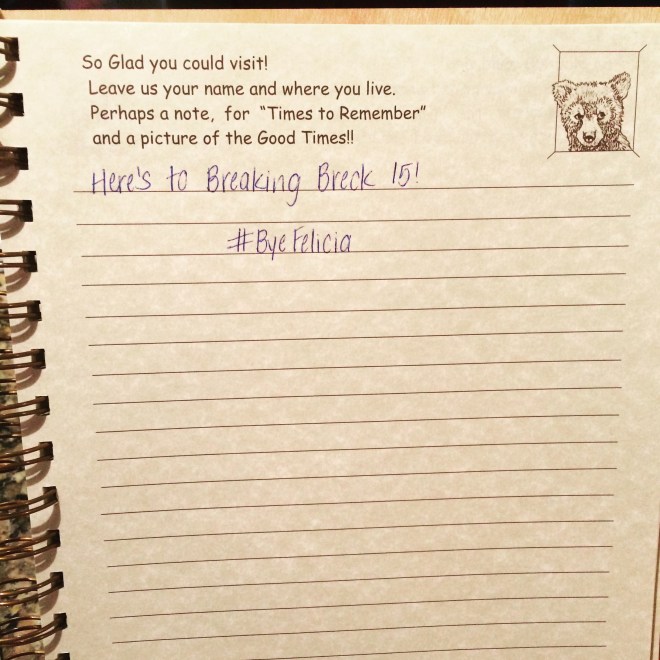 So Glad you could visit!
Leave us your name and where you live.
Perhaps a note, for "Times to Remember"
and a picture of the Good Times!!
Here's to Breaking Breck 15!
#ByeFelicia